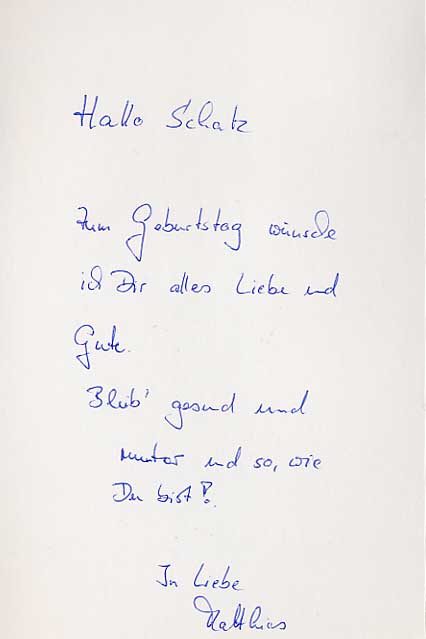 Hallo Schatz
zum Geburtstag wünsche
ich Dir alles Liebe und
Gute.
Bleib' gesund und
munter und so, wie
Du bist!
In Liebe
Matthias